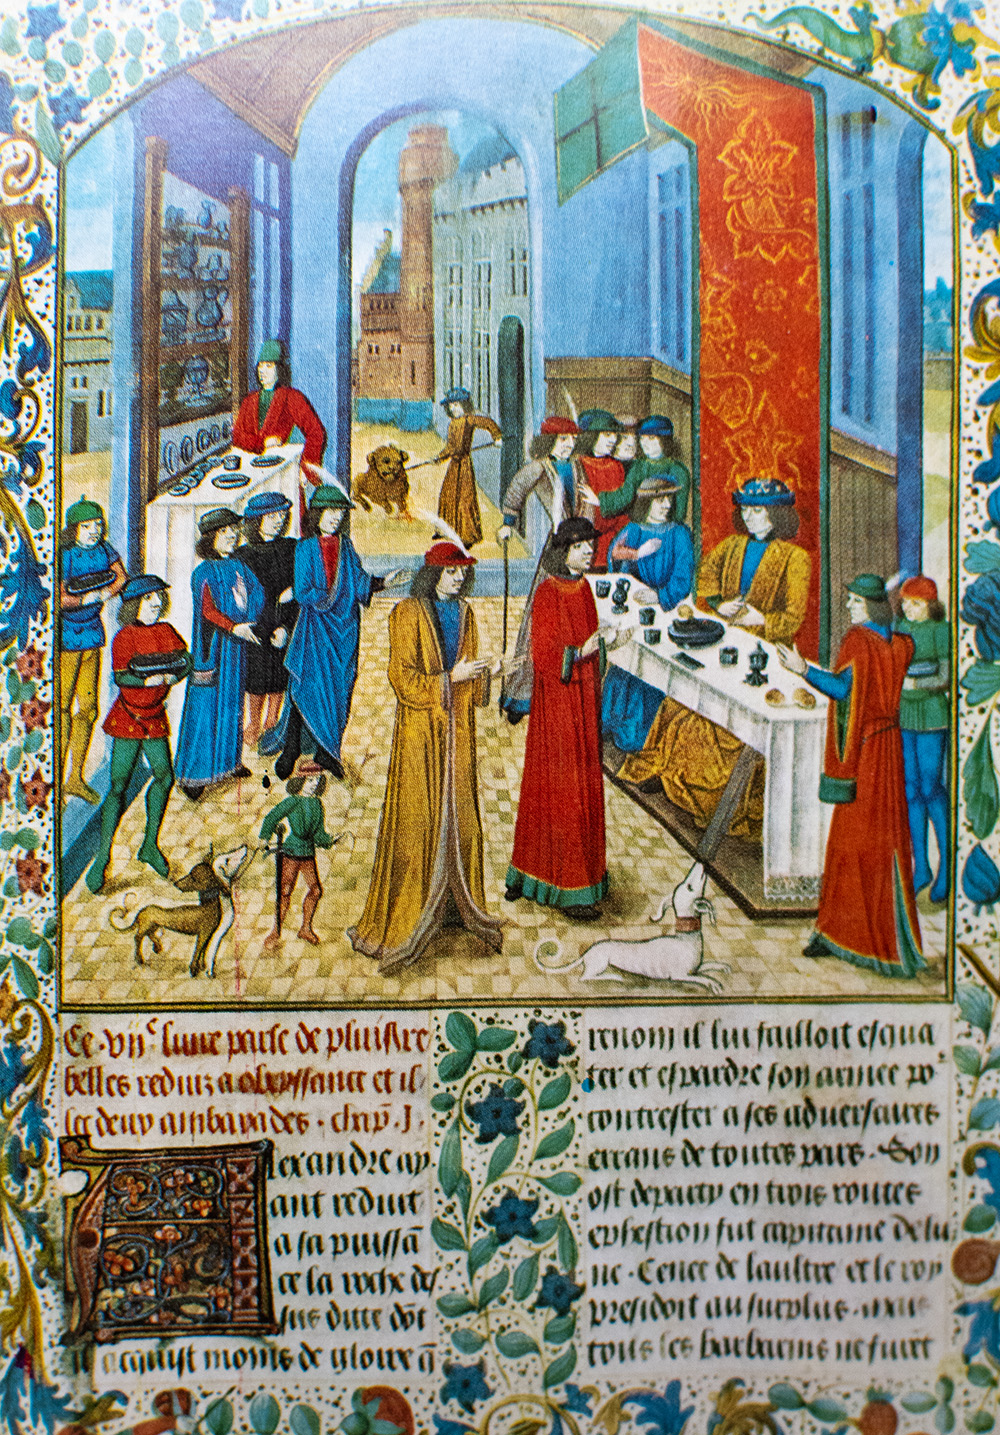 Ce .viiᵉ. liure parle de pluisieurs
belles reduiz a obeyssance et il
les deux ambaxades . chap̄. J.
Alexandre ay
ant reduit
a sa puissā
ce la roche de
sus ditte dōt
il acquist moins de gloire q̄
renom il lui failloit esqua
ter et espardre son armee po
contrester a ses aduersaires
errans de toutes pars. Son
ost departy en trois routes
ephestion fut capitaine de lu
ne . Cenee de laultre et le roy
presidoit au surplus . mais
tous les barbarins ne furēt